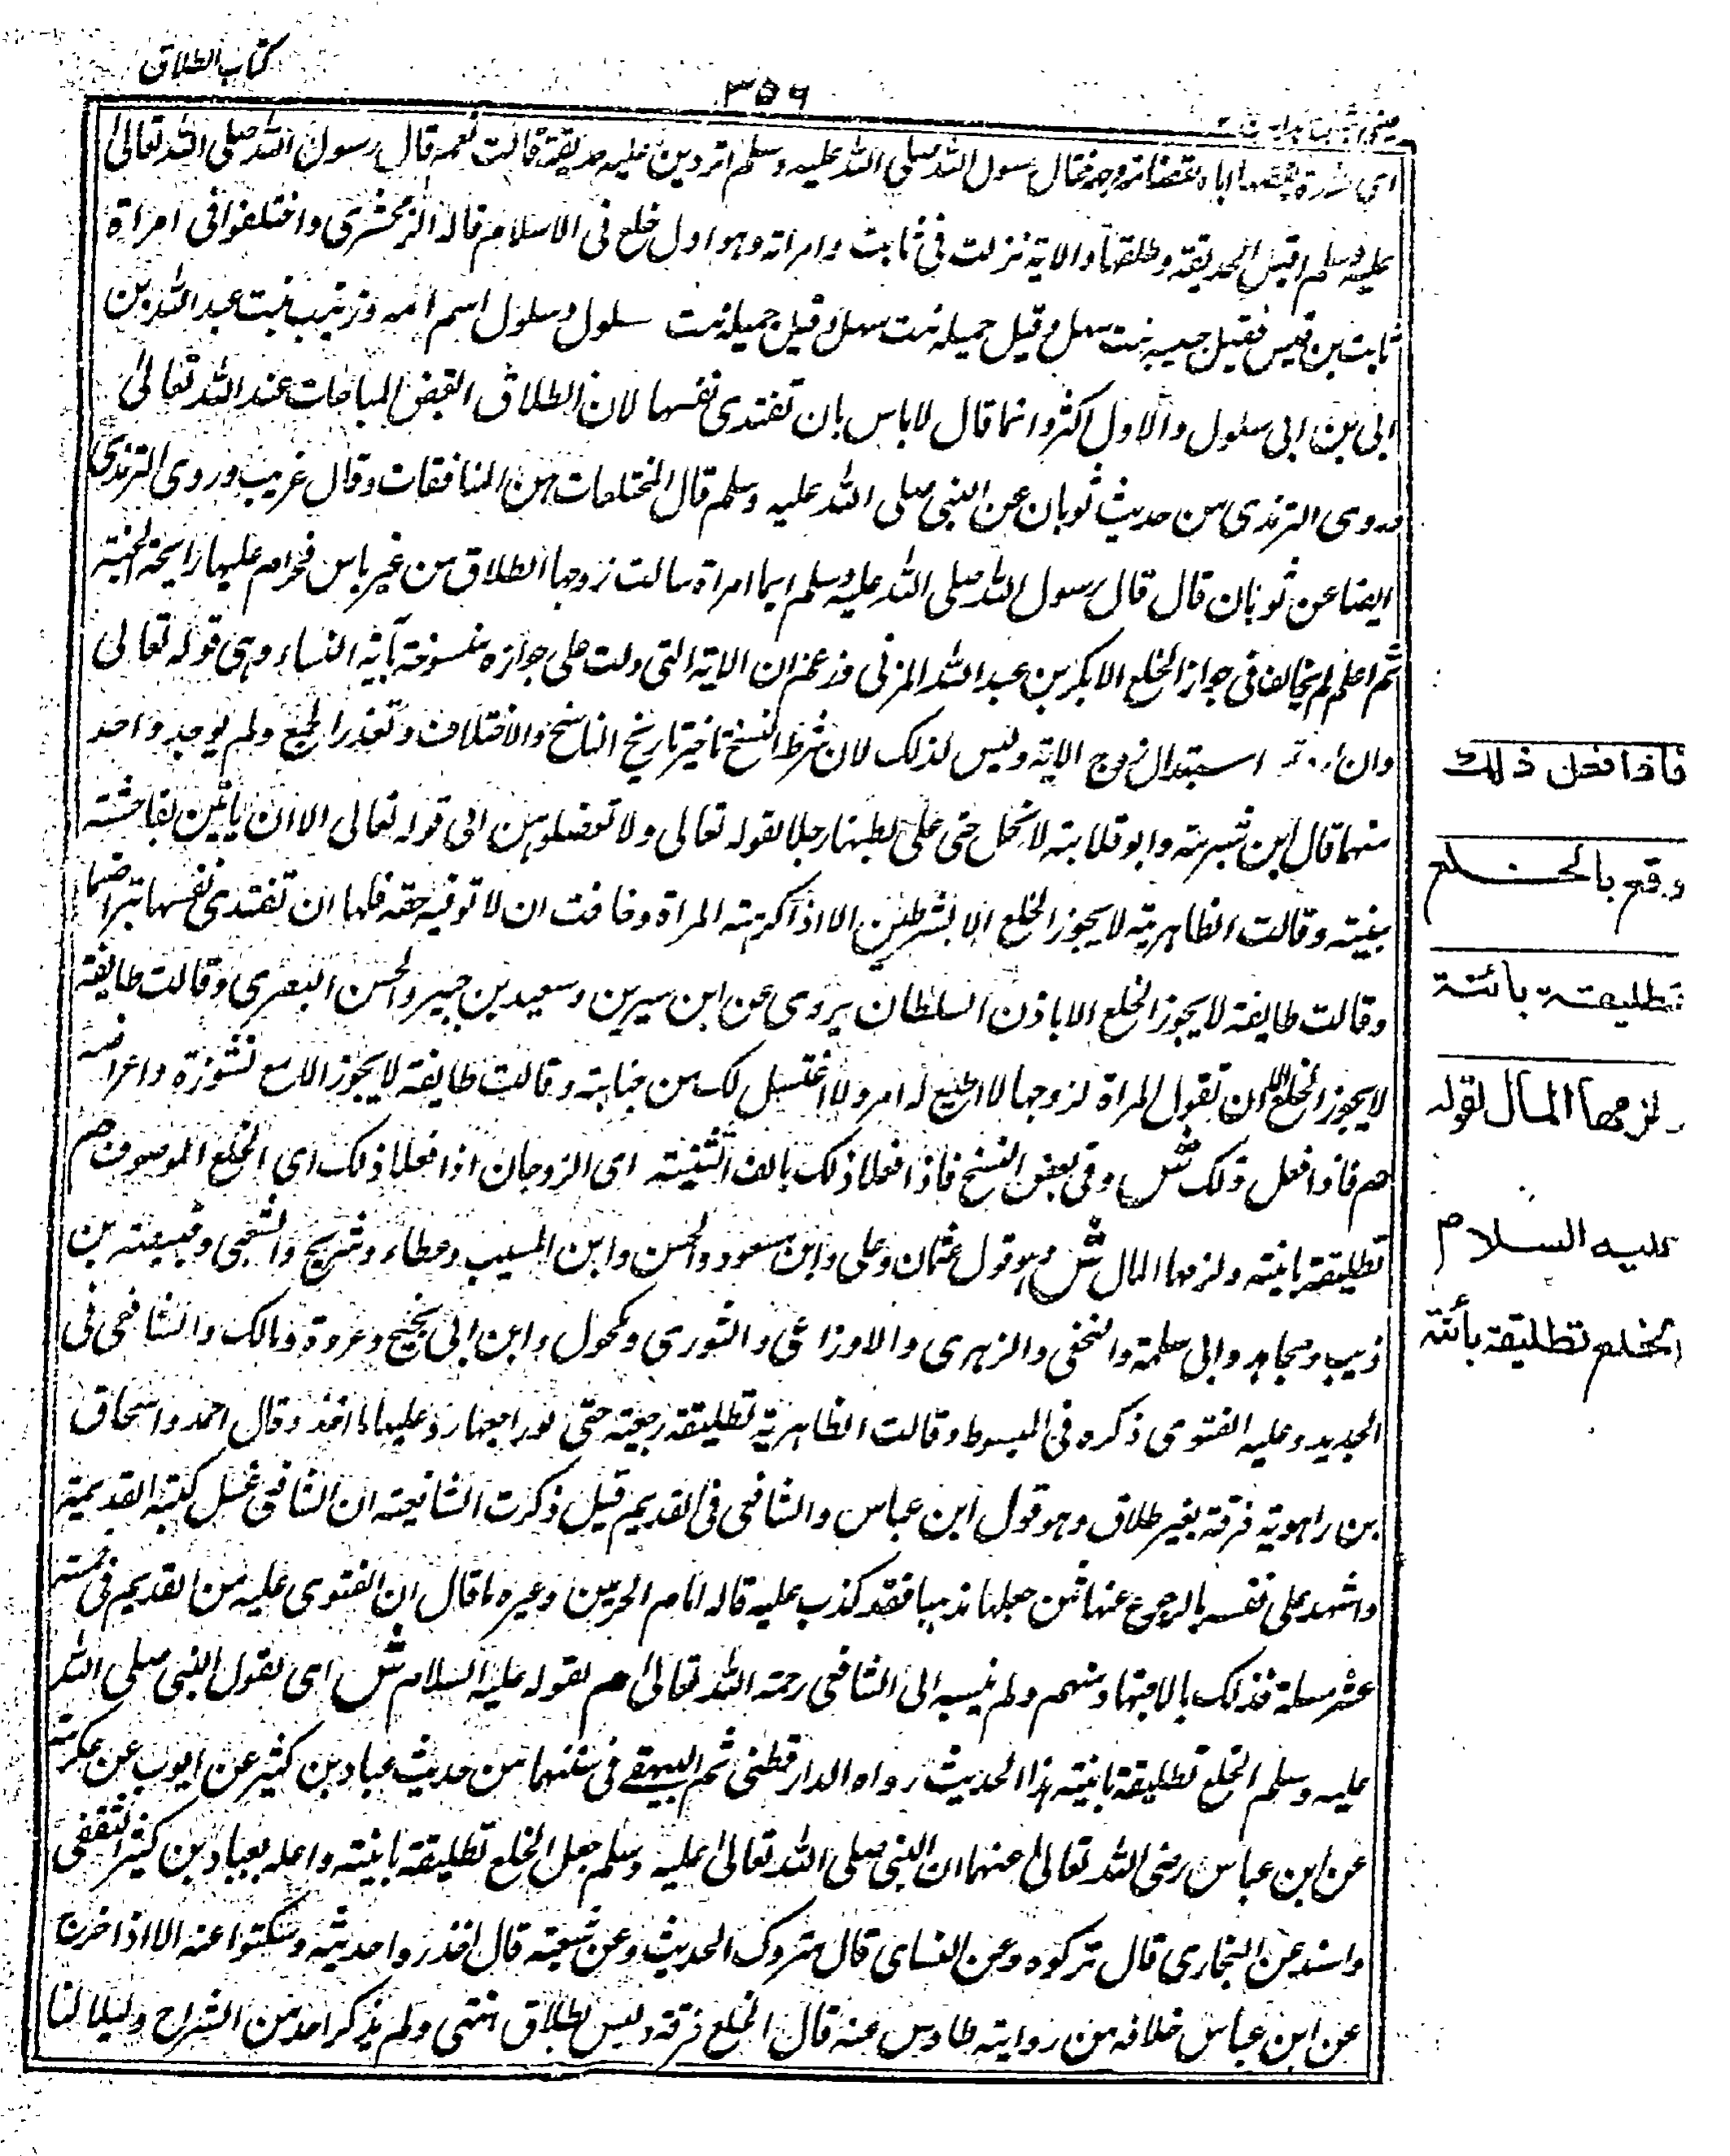 كتاب الطلاق
٣٥٦
عينى
اى شدة بغضها اياه بقضاتزوجه فقال رسول الله صلى الله عليه وسلم اتردين عليه حديقة قالت نعم قال رسول الله صلى الله تعالى
عليه وسلم اقبل الحديقة وطلقها والاية نزلت فى ثابت وامراته وهو اول خلع فى الاسلام قاله الزمخشرى واختلفوا فى امراة
ثابت بن قيس فقيل حبيبه بنت سهل وقيل جميله بنت سهل وقيل جميله بنت سلول وسلول اسم امه وزينب بنت عبد الله بن
ابى بن ابى سلول والاول اكثر وانما قال لاباس بان تفتدى نفسها لان الطلاق ابغض المباحات عند الله تعالى
وروى الترمذى من حديث ثوبان عن النبى صلى الله عليه وسلم قال المختلعات هن المنافقات وقال غريب وروى الترمذى
ايضا عن ثوبان قال قال رسول الله صلى الله عليه وسلم ايما امراة سالت زوجها الطلاق من غير باس فحرام عليها رايحة الجنة
ثم اعلم لم يخالف فى جواز الخلع الا بكر بن عبد الله المزنى وزعم ان الاية التى دلت على جوازه منسوخة بآية النساء وهى قوله تعالى
وان اردتم استبدال زوج الاية وليس لذلك لان شرط النسخ تاخير تاريخ الناسخ والاختلاف وتعذر الجمع ولم يوجد واحد
منهما قال ابن شبرمة وابو قلابة لا تحل حتى على بطنها رجلا لقوله تعالى ولا تعضلوهن الى قوله تعالى الا ان ياتين بفاحشة
بينة وقالت الظاهرية لا يجوز الخلع الا بشرطين الا اذا كرهته المراة وخافت ان لا توفيه حقه فلها ان تفتدى نفسها بتراضيهما
وقالت طايفة لا يجوز الخلع الا باذن السلطان يروى عن ابن سيرين وسعيد بن جبير والحسن البصرى وقالت طايفة
لا يجوز الخلع الا ان تقول المراة لزوجها لا اطيع له امر ولا اغتسل لك من جنابة وقالت طايفة لا يجوز الا مع نشوزه واعراضه
هم فاذا فعل ذلك ش وفى بعض النسخ فاذا فعلا ذلك بالف التثنية اى الزوجان اذا فعلا ذلك اى الخلع الموصوف هم
تطليقة باينة ولزمها المال ش وهو قول عثمان وعلى وابن مسعود والحسن وابن المسيب وعطاء وشريح والشعبى وقبيصة بن
ذيب ومجاهد وابى سلمة والنخعى والزهرى والاوزاعى والثورى ومكحول وابن ابى نجيح وعروة ومالك والشافعى فى
الجديد وعليه الفتوى ذكره فى المبسوط وقالت الظاهرية تطليقة رجعية حتى لو راجعها رد عليها ما اخذ وقال احمد واسحاق
بن راهوية فرقة بغير طلاق وهو قول ابن عباس والشافعى فى القديم قيل ذكرت الشافعية ان الشافعى غسل كتبه القديمية
واشهد على نفسه بالرجوع عنها فمن جعلها مذهبا فقد كذب عليه قاله امام الحرمين وغيره ما قال ان الفتوى عليه من القديم فى خمسة
عشر مسلة فذلك بالاجتهاد منهم ولم ينسبه الى الشافعى رحمة الله تعالى هم لقوله عليه السلام ش اى لقول النبى صلى الله
عليه وسلم الخلع تطليقة باينة هذا الحديث رواه الدارقطنى ثم البيهقى فى سننهما من حديث عباد بن كثير عن ايوب عن عكرمة
عن ابن عباس رضى الله تعالى عنهما ان النبى صلى الله تعالى عليه وسلم جعل الخلع تطليقة باينة واعله بعباد بن كثير الثقفى
واسند عن البخارى قال تركوه وعن النساى قال متروك الحديث وعن شعبة قال احذروا حديثه وسكتوا عنه الا اذا اخرج
عن ابن عباس خلافه من رواية طاوس عنه قال الخلع فرقة وليس بطلاق انتهى ولم يذكر احد من الشراح دليلا لنا
فاذا فعل ذلك
وقع بالخلع
تطليقة بائنة
ولزمها المال لقوله
عليه السلام
الخلع تطليقة بائنة